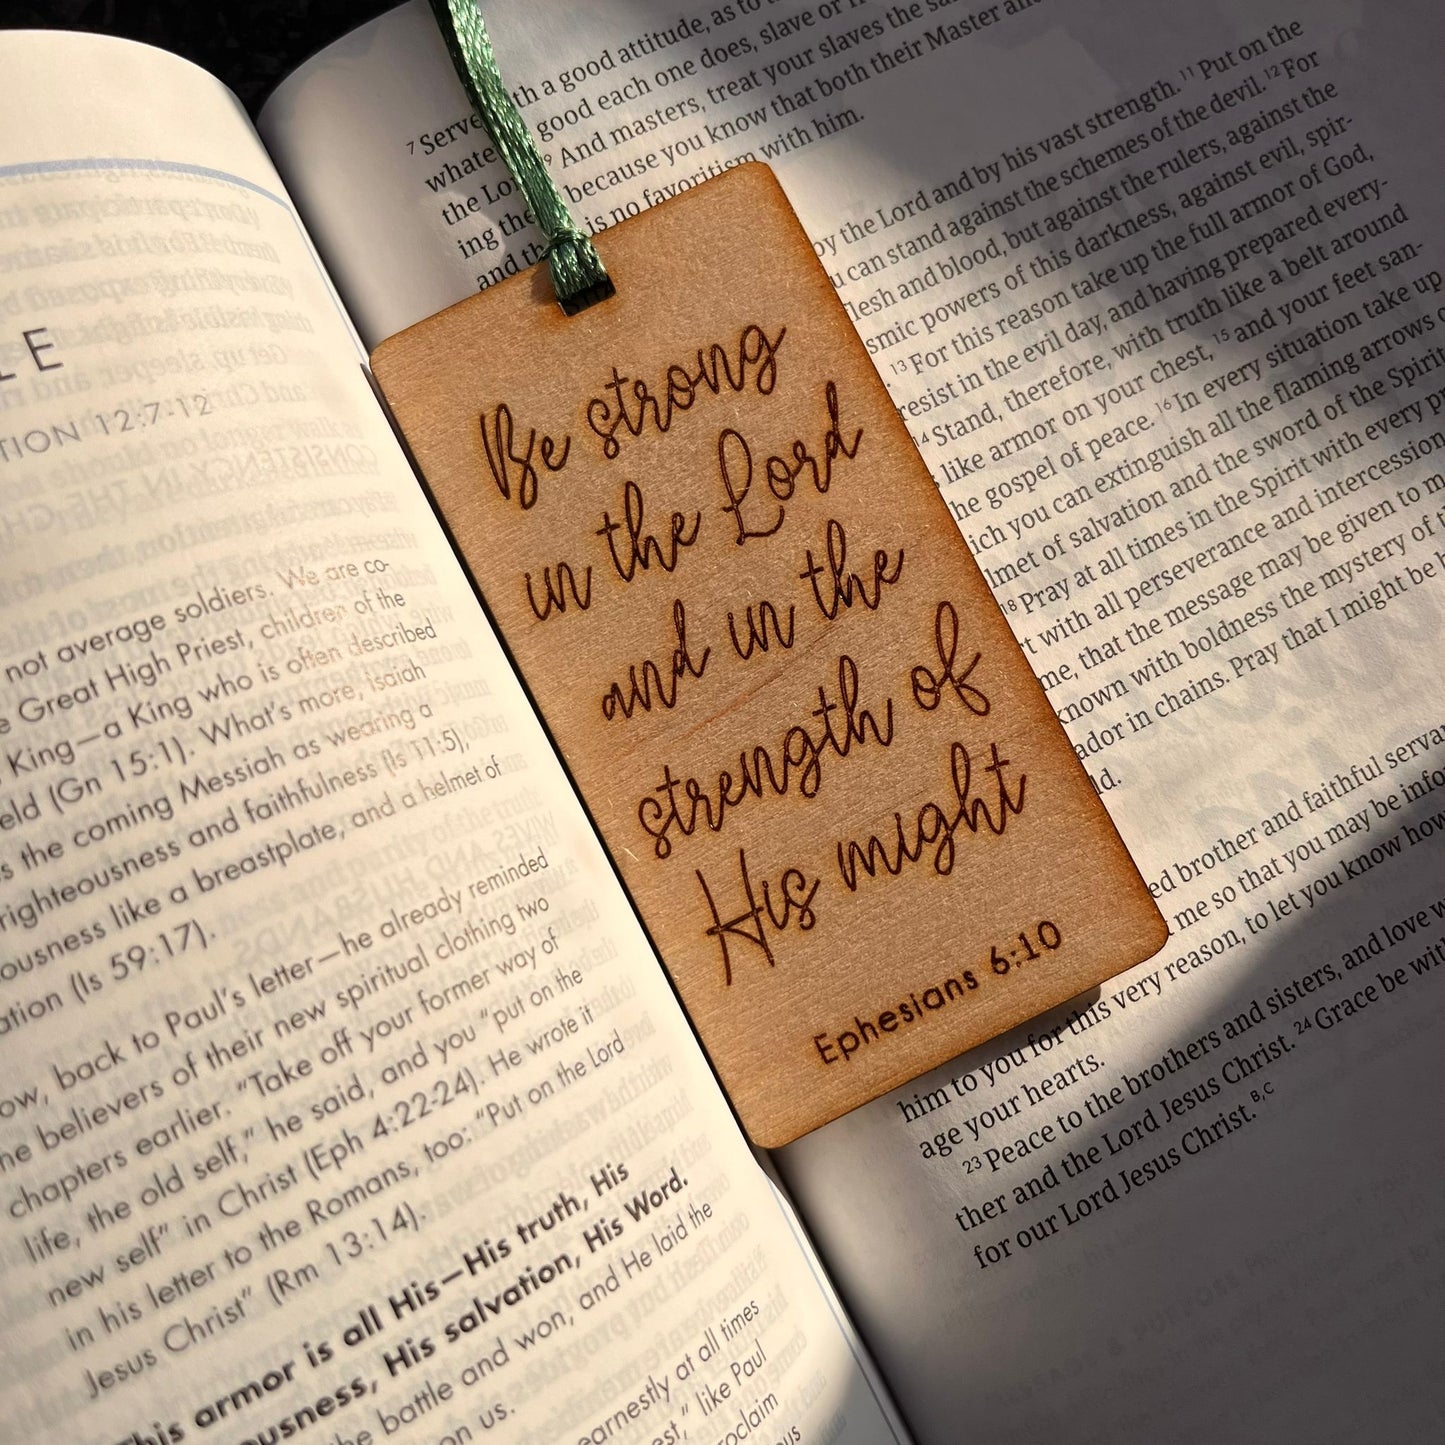 LE
TION 12:7-12
not average soldiers. We are co-
e Great High Priest, children of the
King—a King who is often described
eld (Gn 15:1). What's more, Isaiah
s the coming Messiah as wearing a
righteousness and faithfulness (Is 11:5),
ousness like a breastplate, and a helmet of
ation (Is 59:17).
ow, back to Paul's letter—he already reminded
he believers of their new spiritual clothing two
chapters earlier. "Take off your former way of
life, the old self," he said, and you "put on the
new self" in Christ (Eph 4:22-24). He wrote it
in his letter to the Romans, too: "Put on the Lord
Jesus Christ" (Rm 13:14).
This armor is all His—His truth, His
ousness, His salvation, His Word.
he battle and won, and He laid the
on us.
earnestly at all times
est," like Paul
oclaim
ous
Be strong
in the Lord
and in the
strength of
His might
Ephesians 6:10
7 Serve th a good attitude, as to
whate good each one does, slave or
the Lor 9 And masters, treat your slaves the sa
ing the because you know that both their Master an
and th is no favoritism with him.
by the Lord and by his vast strength. 11 Put on the
u can stand against the schemes of the devil. 12 For
lesh and blood, but against the rulers, against the
smic powers of this darkness, against evil, spir-
13 For this reason take up the full armor of God,
resist in the evil day, and having prepared every-
14 Stand, therefore, with truth like a belt around
like armor on your chest, 15 and your feet san-
he gospel of peace. 16 In every situation take up
ich you can extinguish all the flaming arrows o
lmet of salvation and the sword of the Spirit
18 Pray at all times in the Spirit with every p
rt with all perseverance and intercession
me, that the message may be given to m
known with boldness the mystery of t
ador in chains. Pray that I might be b
ld.
ed brother and faithful serva
t me so that you may be infor
him to you for this very reason, to let you know how
age your hearts.
23 Peace to the brothers and sisters, and love w
ther and the Lord Jesus Christ. 24 Grace be wit
for our Lord Jesus Christ. B,C